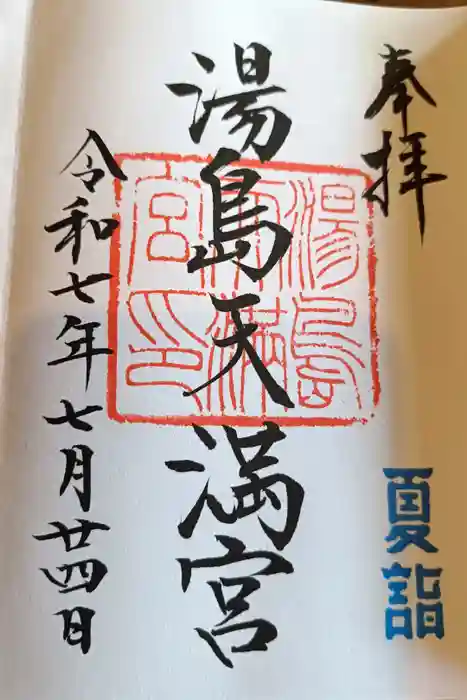 奉拝
夏詣
湯島天満宮
湯島
天満
宮印
令和七年七月廿四日